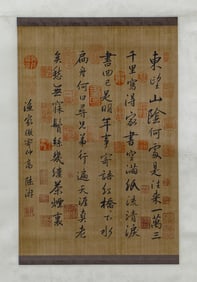 東望山陰何處是往來一萬三
千里寫得家書空滿紙流清淚
書回已是明年事寄語紅橋下水
扁舟何日尋兄弟行遍天涯真老
矣愁無寐鬢絲幾縷茶煙裏
漁家傲寄仲高 陸游